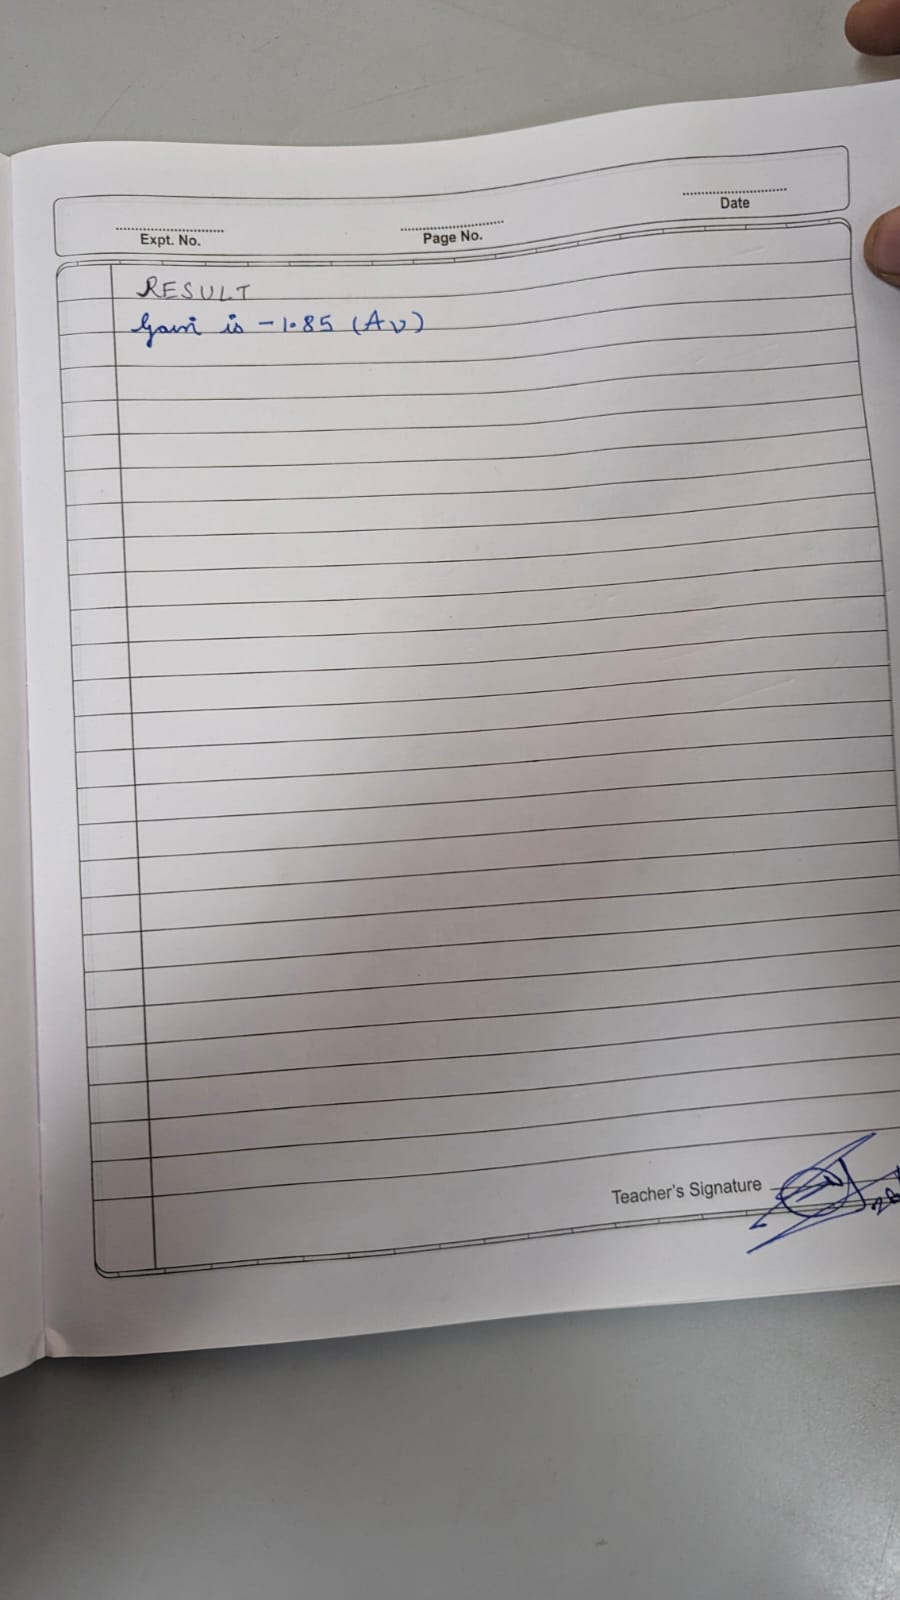 Date
Expt. No.
Page No.
RESULT
Gain is -1.85 (Av)
Teacher's Signature